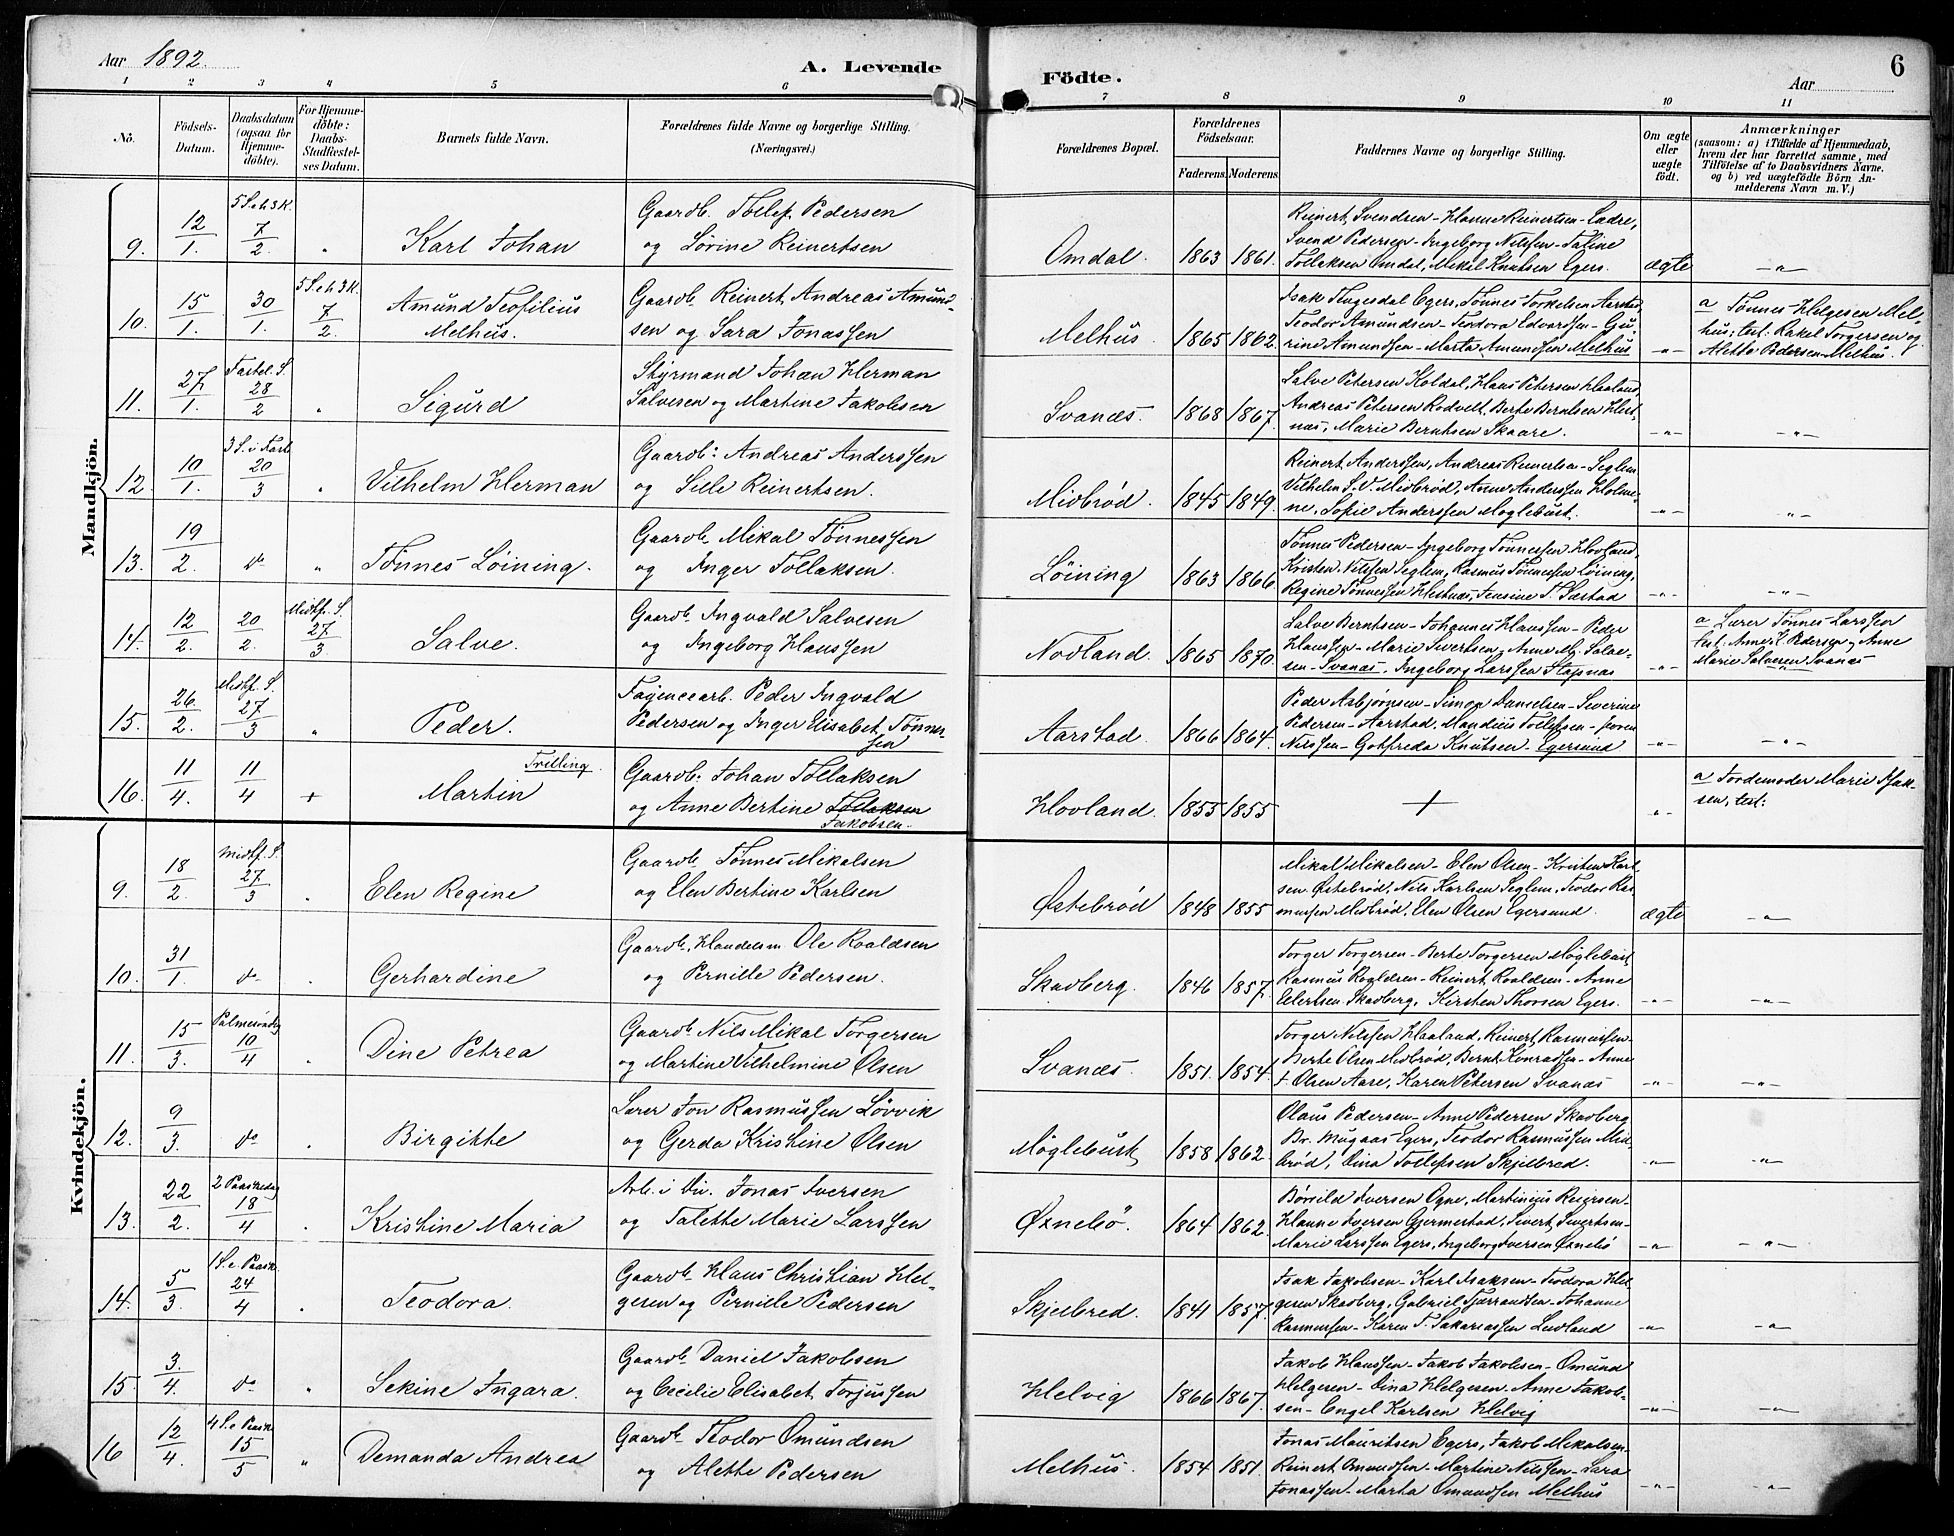 Aar 1892.
A. Levende
Födte.
Aar
6
1 2 3 4 5 6 7 8 9 10 11
No.
Födsels-
Datum.
Daabsdatum
(ogsaa for
Hjemme-
döbte).
For Hjemme-
döbte:
Daabs-
Stadfæstel-
ses Datum.
Barnets fulde Navn.
Forældrenes fulde Navne og borgerlige Stilling.
(Næringsvei.)
Forældrenes Bopæl.
Forældrenes
Födselsaar.
Faderens. Moderens.
Faddernes Navne og borgerlige Stilling.
Om ægte
eller
uægte
födt.
Anmærkninger
(saasom: a) i Tilfælde af Hjemmedaab,
hvem der har forrettet samme, med
Tilföielse af to Daabsvidners Navne.
og b) ved uægtefödte Börn An-
melderens Navn m. V.)
Mandkjön.
9. 12/1. 5 S. e. h. 3 K. 7/2. " Karl Johan
Gaardb. Tollef Pedersen
og Sørine Reinertsen
Omdal. 1863 1861.
Reinert Svendsen - Hanne Reinertsen - Lædre,
Svend Pedersen - Ingeborg Nilssen - Taline
Tollaksen Omdal, Mikal Knutsen Egers.
ægte -"-
10. 15/1. 30/1. 5 S. e. h. 3 K. 7/2. Amund Teofilius
Melhus.
Gaardb. Reinert Andreas Amund-
sen og Sara Jonassen
Melhus. 1865 1862.
Isak Tengesdal Egers, Tønnes Torkelsen Aarstad,
Teodor Amundsen - Teodora Edvardsen - Gu-
rine Amundsen - Marta Amundsen Melhus
-"-
a Tønnes Helgesen Mel-
hus; test: Rakel Torgersen og
Alette Pedersen Melhus.
11. 27/1. Fastel. S. 28/2 " Sigurd
Styrmand Johan Herman
Salvesen og Martine Jakobsen
Svanæs. 1868 1867.
Salve Petersen Koldal, Hans Petersen Haaland,
Andreas Petersen Rodvelt, Berte Berntsen Hest-
næs, Marie Berntsen Skaare.
-"- -"-
12. 10/1. 3 S. i Faste 20/3 " Vilhelm Herman
Gaardb: Andreas Anderssen
og Sille Reinertsen.
Midbrød. 1845 1849.
Reinert Anderssen, Andreas Reinertsen - Seglem
Vilhelm S. V. Midbrød, Anne Anderssen Holme-
ne, Sofie Anderssen Møglebust.
-"- -"-
13. 19/2. do " Tønnes Løining.
Gaardb. Mikal Tønnessen
og Inger Tollaksen.
Løining 1863 1866
Tønnes Pedersen - Ingeborg Tønnessen Hovland,
Kristen Nilssen Seglem, Rasmus Tønnessen Løining,
Regine Tønnessen Hestnæs, Jensine T. Sæstad
-"- -"-
14. 12/2. 20/2. Midtf. S. 27/3 Salve.
Gaardb. Ingvald Salvesen
og Ingeborg Hanssen
Nodland. 1865 1870.
Salve Berntsen - Johannes Hanssen - Peder
Hanssen - Marie Sivertsen, Anne M. Salve-
sen - Svanæs, Ingeborg Larssen Stapnæs
-"-
a Lærer Tønnes Larssen
test: Anne K. Pedersen, Anne
Marie Salvesen Svanæs
15. 26/2. Midtf. S. 27/3 " Peder.
Fayencearb. Peder Ingvald
Pedersen og Inger Elisabet Tønnes-
sen
Aarstad. 1866 1864.
Peder Asbjørnsen - Simon Danielsen - Severine
Pedersen - Aarstad, Mandius Tollefsen - Soren
Nilssen - Gotfreda Knutsen - Egersund
-"- -"-
16. 11/4. 11/4 + Martin Trilling.
Gaardb: Johan Tollaksen
og Anne Bertine Tollaksen
Jakobsen.
Hovland. 1855 1855
+
-"-
a Jordemoder Marie Isak-
sen, test:
Kvindekjön.
9. 18/2. Midtf. S. 27/3 " Elen Regine
Gaardb. Tønnes Mikalsen
og Elen Bertine Karlsen
Østebrød 1848 1855
Mikal Mikalsen - Elen Olsen - Kristen Karl-
sen Østebrød, Nils Karlsen Seglem, Teodor Ras-
mussen Midbrød, Elen Olsen Egersund.
ægte -"-
10. 31/1. do " Gerhardine
Gaardb, Handelsm. Ole Roaldsen
og Pernille Pedersen.
Skadberg. 1846 1857.
Torger Torgersen - Berte Torgersen Møglebust,
Rasmus Rogldsen - Reinert Roaldsen - Anne
Eilertsen Skadberg, Kirsten Thorsen Egers.
-"- -"-
11. 15/3. Palmesøndag 10/4 " Dine Petrea
Gaardb. Nils Mikal Torgersen
og Martine Vilhelmine Olsen
Svanæs. 1851. 1854.
Torger Nilssen Haaland, Reinert Rasmussen
Berte Olsen Midbrød, Bernt Konradsen - Anne
+ Olsen Aase, Karen Petersen Svanæs
-"- -"-
12. 9/3. do " Birgitte
Lærer Jon Rasmussen Løvvik
og Gerda Kristine Olsen
Møglebust 1858 1862.
Olaus Pedersen - Anne Pedersen Skadberg
Br. Mugaas Egers, Teodor Rasmussen Mid-
brød, Dina Tollefsen Skjelbred.
-"- -"-
13. 22/2. 2 Paaskedag 18/4 " Kristine Maria
Arb. i Div. Jonas Iversen
og Talette Marie Larssen
Øxnebø. 1864 1862.
Børsild Iversen Ogne, Martinius
Hanne Iversen Gjermestad, Sivert Sivertsen -
Marie Larssen Egers, Ingeborg Iversen Øxnebø
-"- -"-
14. 5/3. 1 S. e. Paask. 24/4 " Teodora.
Gaardb. Hans Christian Hel-
gesen og Pernille Pedersen
Skjelbred. 1841 1857.
Isak Jakobsen - Karl Isaksen - Teodora Hel-
gesen Skadberg, Gabriel Fjærrandsen - Johanne
Rasmussen - Karen T. Sakariassen Leidland
-"- -"-
15. 3/4. do " Sekine Ingara.
Gaardb. Daniel Jakobsen
og Cecilie Elisabet Torjussen
Helvig 1866 1867.
Jakob Hanssen - Jakob Jakobsen - Omund
Helgesen - Dina Helgesen - Anne Jakob-
sen - Engel Karlsen Helvig
-"- -"-
16 12/4. 4 S. e. Paask. 15/5 " Demanda Andrea
Gaardb. Teodor Omundsen
og Alette Pedersen
Melhus. 1854 1851.
Jonas Mauritsen Egers, Jakob Mikalsen
Reinert Omundsen - Martine Nilssen - Sara
Jonassen - Marta Omundsen Melhus
-"- -"-